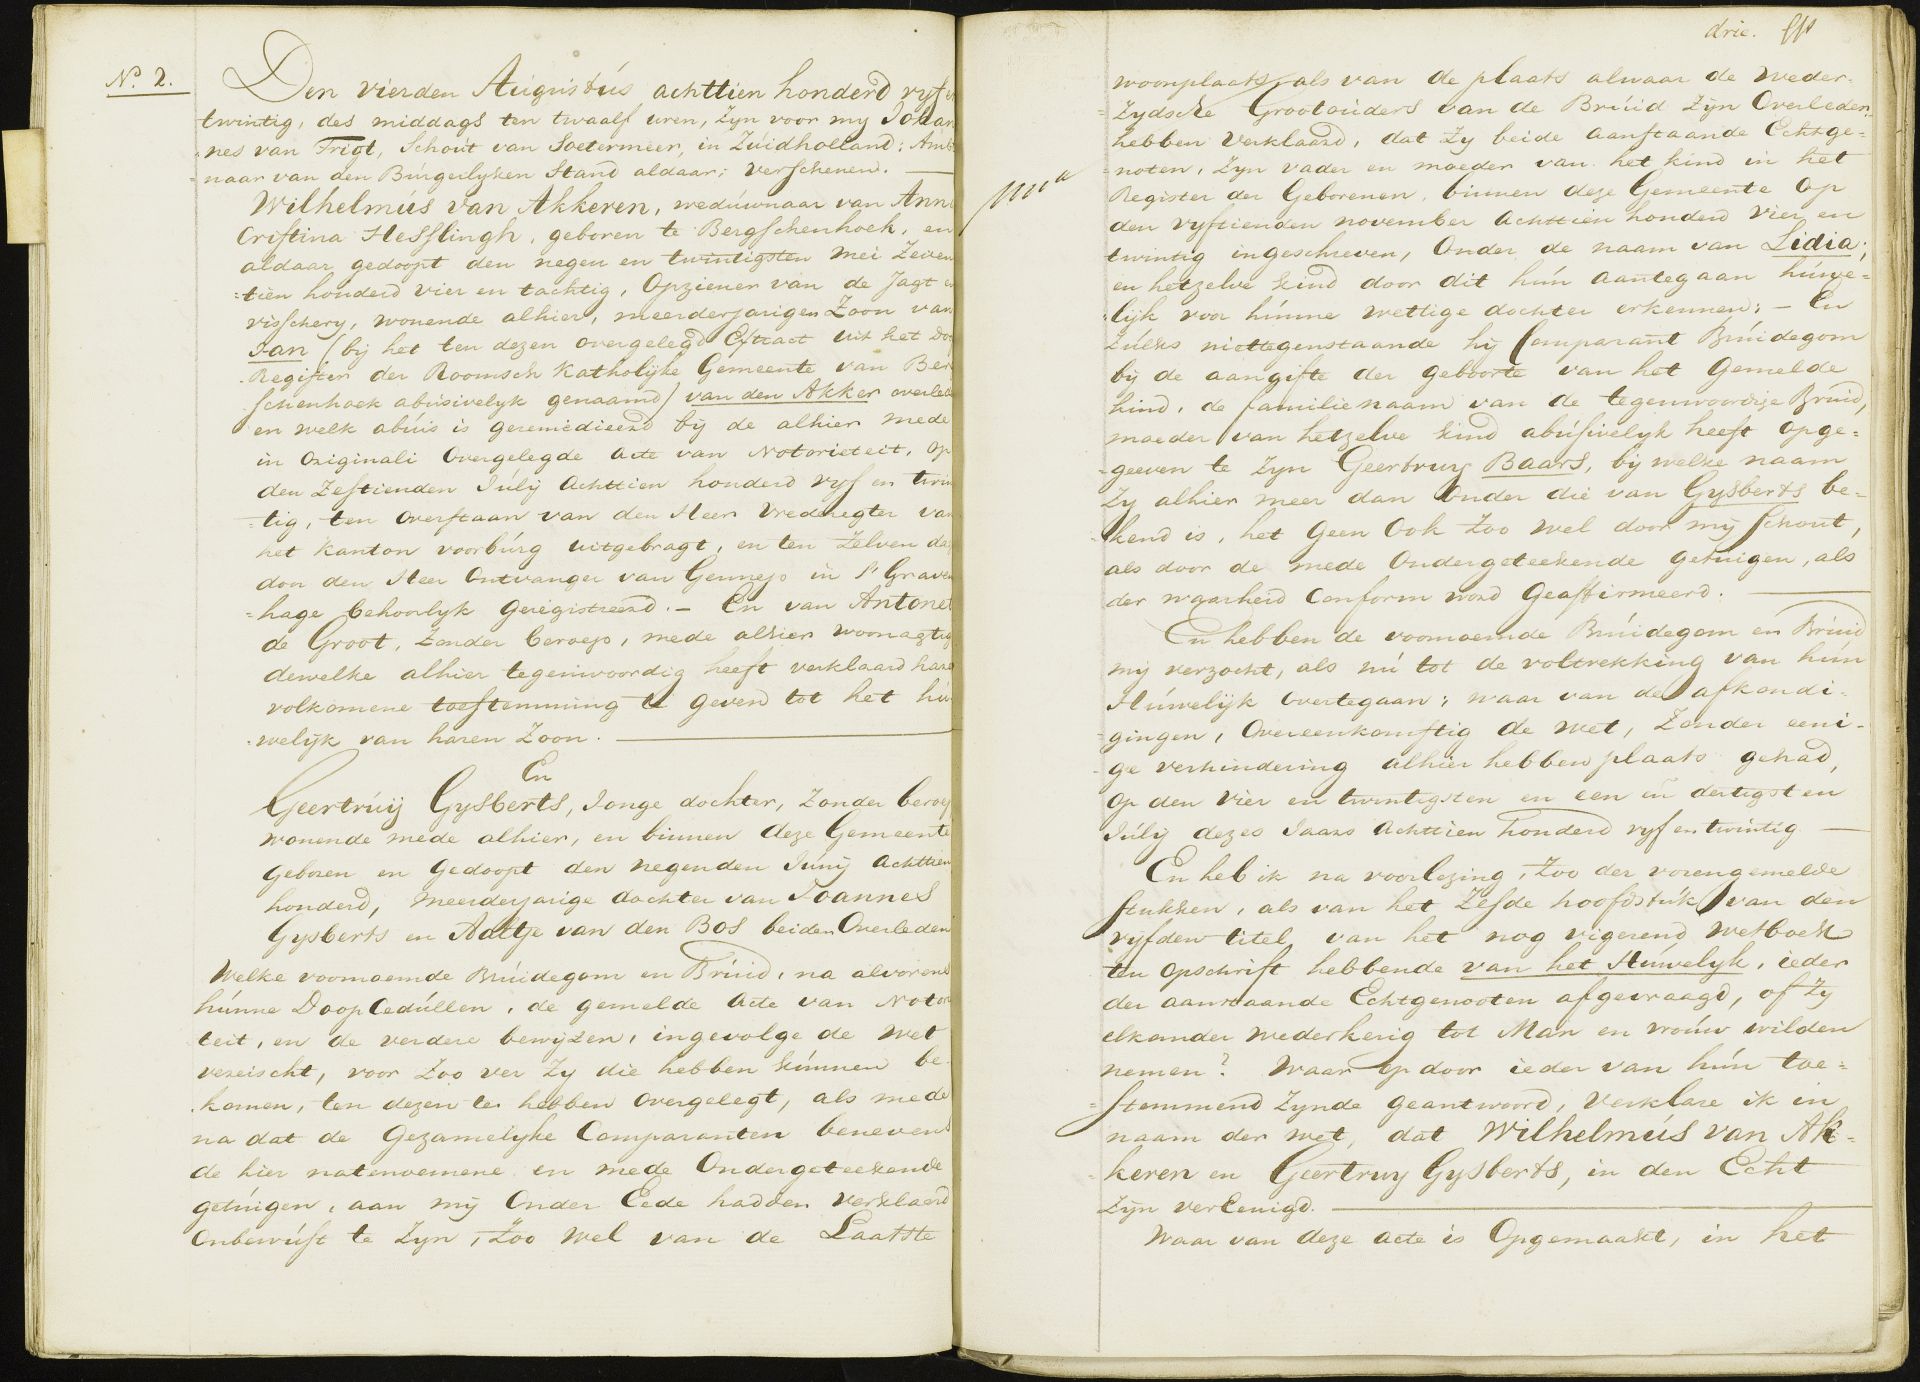 No. 2.
Den vierden Augustús achttien honderd vyf en
twintig, des middags ten twaalf uren, zyn voor my Johan
nes van Trigt, Schout van Soetermeer, in Zúidholland; Amb
naar van den Búrgerlyken Stand aldaar; verschenen.
Wilhelmús van Akkeren, wedúwnaar van Anna
Cristina Hesslingh, geboren te Bergschenhoek, en
aldaar gedoopt den negen en twintigsten Mei Zeven
=tien honderd vier en tachtig, Opziener van de Jagt en
visschery, wonende alhier, meerderjarigen Zoon van
Jan (bij het ten dezen overgelegd Extract uit het Doo
Register der Roomsch Katholijke Gemeente van Ber
schenhoek abusivelyk genaamd) van den Akker overlede
en welk abúis is geremedieerd bij de alhier mede
in Originali Overgelegde Acte van Notorieteit, op
den Zestienden Júlij Achttien honderd vyf en twin
=tig, ten Overstaan van den Heer Vrederegter van
het Kanton Voorbúrg uitgebragt, en ten Zelven dag
door den Heer Ontvanger van Gennep in 's Graven
=hage behoorlyk geregistreerd. – En van Antonet
de Groot, Zonder beroep, mede alhier woonagtig
dewelke alhier tegenwoordig heeft verklaard hare
volkomene toestemming te geven tot het hú
=welijk van haren Zoon.
En
Geertrúij Gysberts, Jonge dochter, Zonder beroep
wonende mede alhier, en binnen deze Gemeente
geboren en gedoopt den negenden Júnij Achttien
honderd, meerderjarige dochter van Joannes
Gysberts en Aaltje van den Bos beiden Overleden
Welke voornoemde Brúidegom en Brúid, na alvorens
húnne Doop Cedúllen, de gemelde Acte van Notor
teit, en de verdere bewijzen, ingevolge de wet
vereischt, voor Zoo ver Zy die hebben kúnnen be-
komen, ten dezen te hebben Overgelegt, als mede
na dat de Gezamelijke Comparanten benevens
de hier natenoemene en mede Ondergeteekende
getúigen, aan mij Onder Eede hadden verklaard
Onbewúst te Zyn, Zoo wel van de Laatste
drie.
woonplaats, als van de plaats alwaar de weder-
=zydsche Grootoúders van de Brúid Zijn Overleden,
hebben verklaard, dat Zy beide aanstaande Echtge=
=noten, Zyn vader en moeder van het kind in het
Register der Geborenen, binnen deze Gemeente op
den vyftienden november Achttien honderd vier en
twintig ingeschreven, Onder de naam van Lidia;
en hetzelve kind door dit hún aantegaan húwe=
lijk voor húnne wettige dochter erkennen; – En
Zúlks niettegenstaande hij Comparant Brúidegom
bij de aangifte der geboorte van het Gemelde
kind, de familie naam van de tegenwoordige Brúid,
moeder van hetzelve kind abúsivelyk heeft opge=
=geeven te Zyn Geertruy Baars, bij welke naam
Zy alhier meer dan Onder die van Gysberts be-
kend is, het Geen Ook Zoo wel door mij Schout,
als door de mede Ondergeteekende getuigen, als
der waarheid Conform word Geaffirmeerd.
En hebben de voornoemde Brúidegom en Brúid
mij verzocht, als nú tot de voltrekking van hún
Húwelijk Overtegaan; waar van de afkondi-
=gingen, Overeenkomstig de wet, Zonder eeni-
ge verhindering alhier hebben plaats gehad,
Op den vier en twintigsten en een en dertigsten
Júlij dezes Jaars Achttien honderd vyf en twintig
En heb ik na voorlezing, Zoo der vorengemelde
stukken, als van het Zesde hoofdstúk van den
vyfden titel van het nog vigerend Wetboek
ten opschrift hebbende van het Húwelyk, ieder
der aanstaande Echtgenooten afgevraagd, of Zy
elkander wederkerig tot Man en vroúw wilden
nemen? Waar op door ieder van hún toe=
=stemmend Zynde geantwoord, Verklare ik in
naam der Wet, dat Wilhelmús van Ak=
=keren en Geertruy Gysberts, in den Echt
Zijn verEenigd.
Waar van deze acte is Opgemaakt, in het